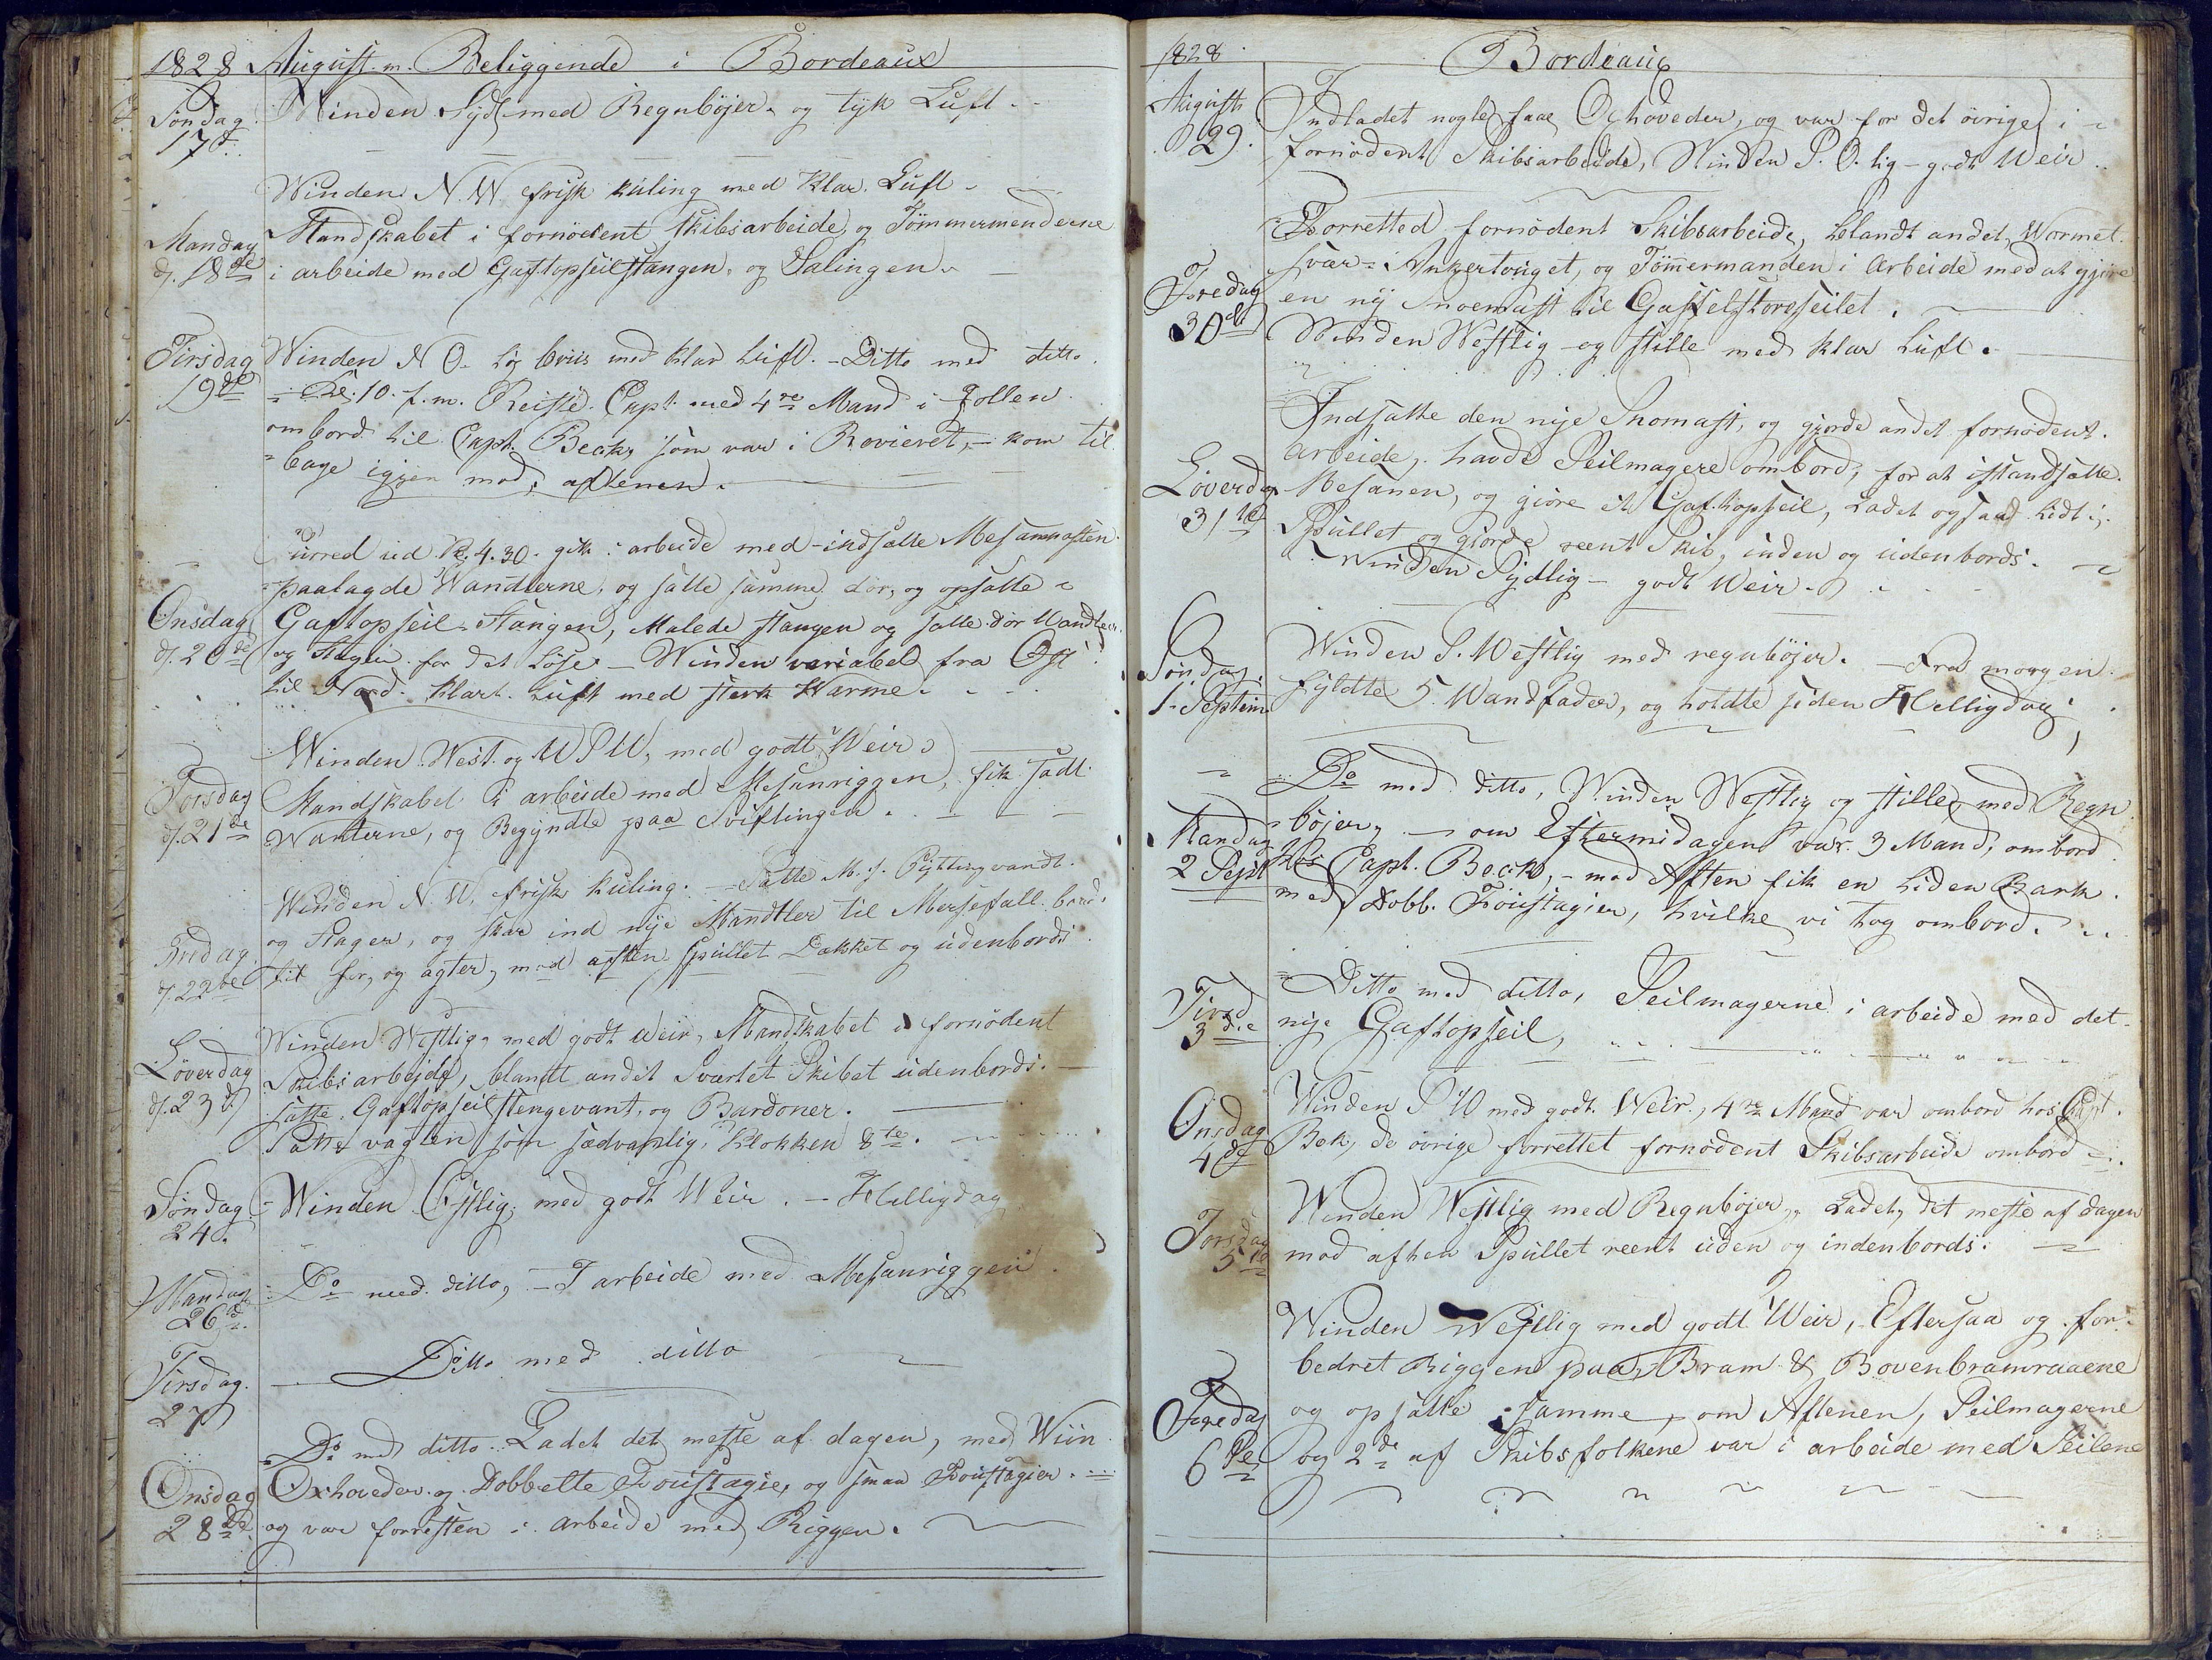 1828 August m. Beliggende i Bordeaux
Søndag 17d.
Winden Syd med Regnbøjer og tyk Luft
Mandag d. 18de
Winden N.W. frisk kuling med klar Luft
Mandskabet i fornødent Skibsarbeide og Tømmermendeene
i arbeide med Gaftopseilstangen og Salingen
Tirsdag 19de
Winden N O. briis med klar Luft. - Ditto med ditto
Kl: 10. f. m. Reiste Capt. med 4re Mand i Jollen
ombord til Capt. Beck, som var i Rovieret, - kom til
bage igjen mod aftenen.
Onsdag d. 20de
Purred ud Kl. 4.30. gik i arbeide med indsatte Mesanmasten
paalagde Wandterne, og satte samme dor, og opsatte
Gaftopseil Stangen, Malede stangen og satte dor Wandter
og Stagen for det Løse - Winden variabel fra Øst
til Nord. klart Luft med sterk Warme.
Torsdag d. 21de
Winden West. og W S W, med godt Weir
Mandskabet i arbeide med Mesanriggen, fik sadt
Wanterne, og Begyndte paa Sviftingen.
Fredag d. 22de
Winden N. W. frisk kuling. - Satte M. S. Pyttingvandt
og Stager, og skar ind nÿe Mandtler til Mersefall
for, og agter, mod aften Spullet Dækket og udenbords
Løverdag d. 23d
Winden Westlig, med godt Weir, Mandskabet i fornødent
Skibsarbejde, blandt andet Svartet Skibet udenbords.
satte Gaftopseilstengevant, og Bardoner.
Satte vagten som sædvanlig, Klokken 8te.
Søndag 24.
Winden Østlig, med godt Weir. - Helligdag
Mandag 26d.
Do med ditto, - I arbeide med Mesanriggen
Tirsdag 27
Ditto med ditto
Onsdag 28de
Do med ditto. Ladet det meste af dagen, med Wiin
Oxhoveder og Dobbelte Foustagie, og smaa Foustagier.
og var forresten i arbeide med Riggen.
1828 Bordeaux
August 29.
Indladet nogle faae Oxhoveder, og var for det øvrige i
fornødent Skibsarbeide, Winden S. O. lig - godt Weir
Fredag 30de
Forretted fornødent Skibsarbeide, blandt andet, Wormet
svær Ankertouget, og Tømermanden i Arbeide med at gjøre
en nÿ Snoemast til Gaffelstoreseilet.
Winden Westlig og stille med klar Luft.
Løverdag 31te
Indsatte den nye Snomast, og gjorde andet fornødent
arbeide, havde Seilmagere ombord, for at istandsætte
Mesanen, og giøre et Gaftopseil, Ladet ogsaa lidt,
Spullet og giorde reent Skib, inden og udenbords.
Winden Sydlig - godt Weir.
Søndag 1. Septem
Winden S. Westlig med regnbøjer. - Fra morgen
fyldte 5 Wandfader, og holdte siden Helligdag
Mandag 2 Sept
Do med ditto, Winden Westlig og stille, med Regn
bøjer, - om Eftermidagen var 3 Mand, ombord
hos Capt. Beck, - mod Aften fik en liden Bark
med Dobb. Foustagier, hvilke vi tog ombord.
Tirsd 3die
Ditto med ditto, Seilmagerne i arbeide med det
nye Gaftopseil,
Onsdag 4de
Winden S W med godt Weir, 4re Mand var ombord hos Capt.
Bek, de øvrige forrettet fornødent Skibsarbeide ombord
Torsdag 5te
Winden Westlig med Regnbøjer, Ladet, det meste af dagen
mod aften Spullet reent uden og indenbords.
Fredag 6te
Winden Westlig med godt Weir, Eftersaa og for
bedret Riggen paa Bram & Bovenbramraaene
og opsatte samme, om Aftenen, Seilmagerne
og 2de af Skibsfolkene var i arbeide med Seilene